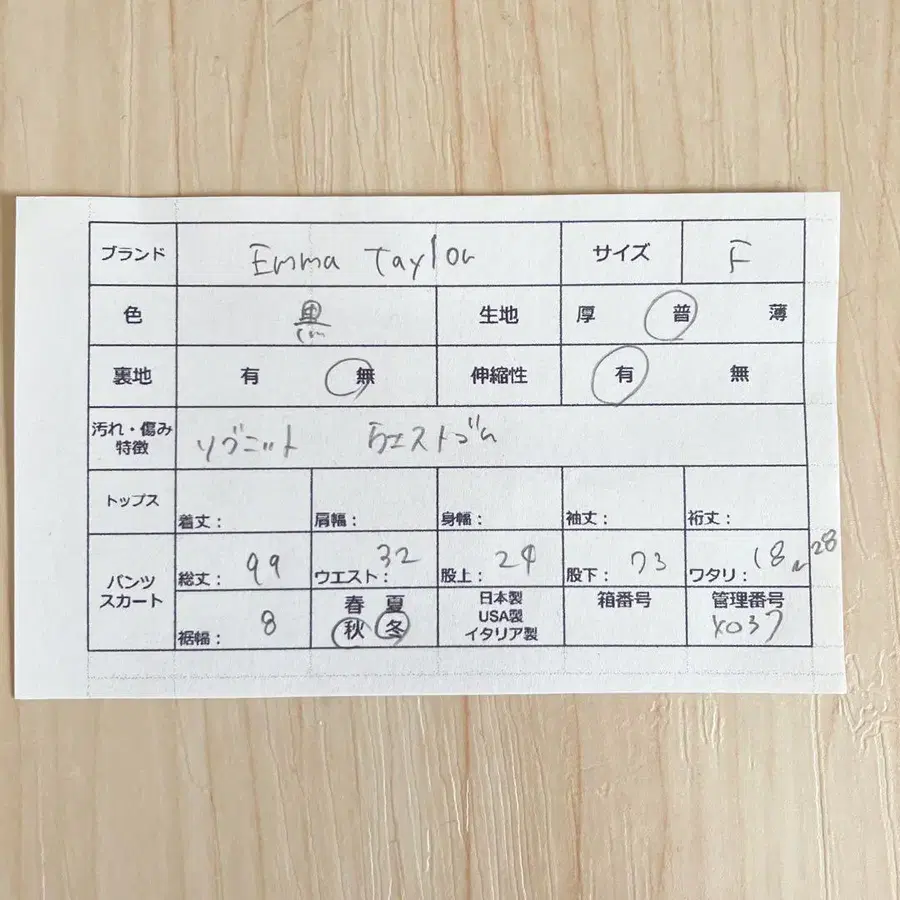 ブランド Emma Taylor サイズ F
色 黒 生地 厚 普 薄
裏地 有 無 伸縮性 有 無
汚れ・傷み
特徴 リブニット ウエストゴム
トップス 着丈： 肩幅： 身幅： 袖丈： 裄丈：
パンツ
スカート 総丈： 99 ウエスト： 32 股上： 24 股下： 73 ワタリ： 18~28
裾幅： 8
春 夏
秋 冬
日本製
USA製
イタリア製
箱番号
管理番号
X037